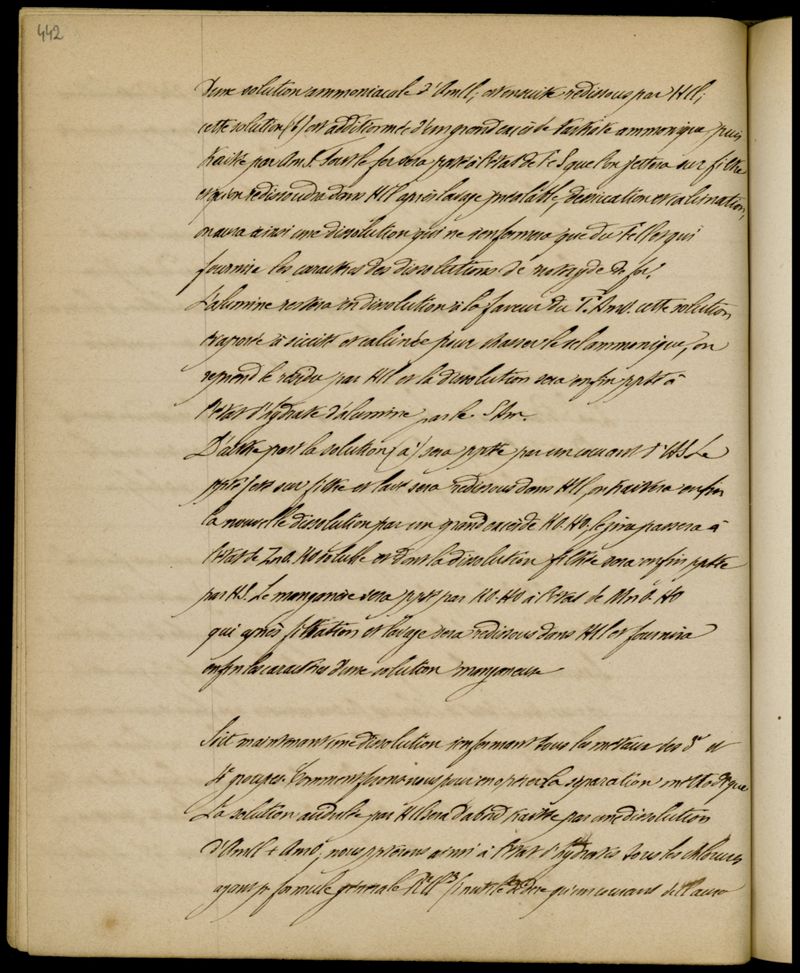 442
d'une solution ammoniacale d'AmCl; et ensuite redissous par HCl;
cette solution (b) est additionnée d'un grand excès de tartrate ammonique puis
traitée par AmS. Tout le fer sera ppté à l'état de FeS que l'on jettera sur filtre
et qu'on redissoudra dans HCl après lavage préalable, dessication et calcination,
on aura ainsi une dissolution qui ne renfermera que du et qui
fournira les caractères des dissolutions de de fer.
L'alumine restera en dissolution à la faveur du T. Am. cette solution
évaporée à siccité et calcinée pour chasser le sel ammonique, on
reprend le résidu par HCl et la dissolution sera enfin ppté à
l'état d'hydrate d'alumine par le SAm.
D'autre part la solution (a) sera pptée par un courant d'HS. Le
ppté jeté sur filtre et lavé sera redissous dans HCl, on traitera enfin
la nouvelle dissolution par un grand excès de KO.HO. le zinc passera à
l'état de ZnO.HO soluble et dont la dissolution filtrée sera enfin pptée
par HS. Le manganèse sera ppté par KO.HO à l'état de MnO.HO
qui après filtration et lavage sera redissous dans HCl et fournira
enfin les caractères d'une solution manganeuse
Soit maintenant une dissolution renfermant tous les métaux des 3e et
4e groupes. Comment ferons nous pour en opérer la séparation méthodique
La solution acidulée par HCl sera d'abord traitée par une dissolution
d'AmCl + AmO, nous pptérons ainsi à l'état d'hydrates tous les chlorures
ayant pr formule générale inutile de dire qu'un courant de Cl aura